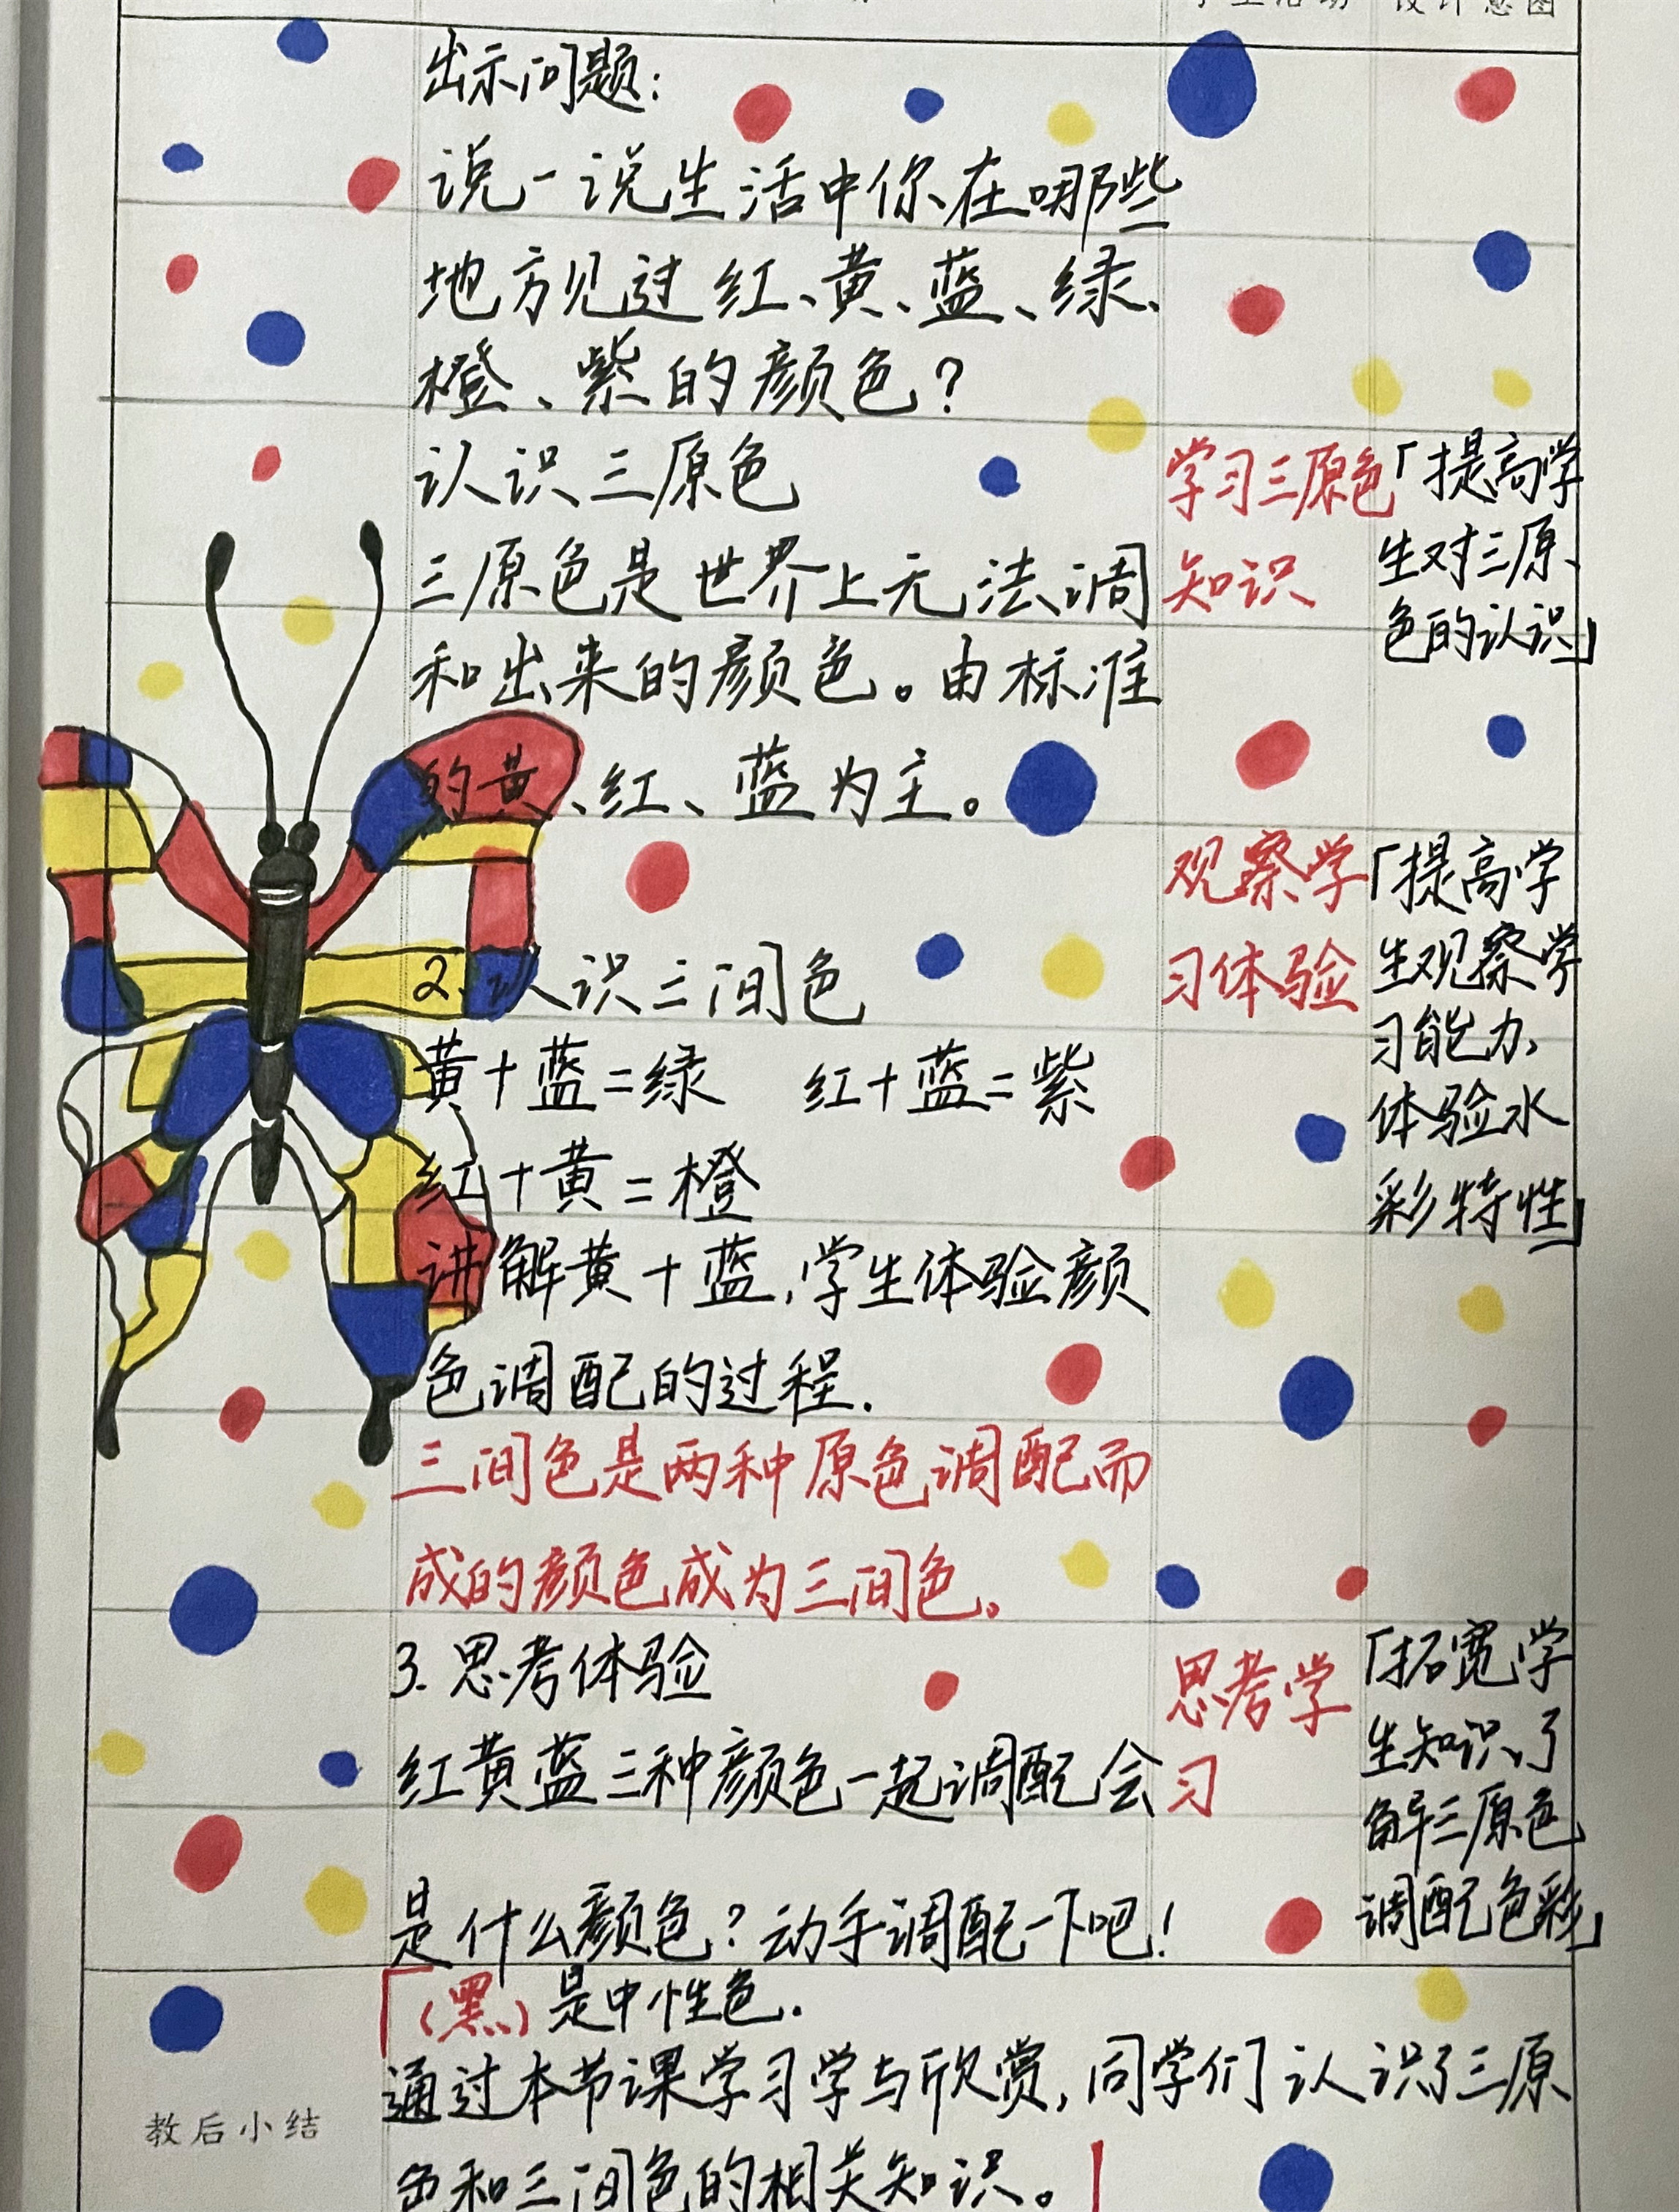 学生活动 设计意图
出示问题:
说一说生活中你在哪些
地方见过红、黄、蓝、绿、
橙、紫的颜色?
认识三原色
三原色是世界上无法调
和出来的颜色。由标准
的黄、红、蓝为主。
2.认识三间色
黄+蓝=绿 红+蓝=紫
红+黄=橙
讲解黄+蓝,学生体验颜
色调配的过程.
三间色是两种原色调配而
成的颜色成为三间色。
3.思考体验
红黄蓝三种颜色一起调配会
是什么颜色?动手调配一下吧!
(黑)是中性色.
学习三原色
知识
观察学
习体验
思考学
习
「提高学
生对三原
色的认识」
「提高学
生观察学
习能力,
体验水
彩特性」
「拓宽学
生知识,了
解三原色
调配色彩」
教后小结
通过本节课学习学与欣赏,同学们认识了三原
色和三间色的相关知识。